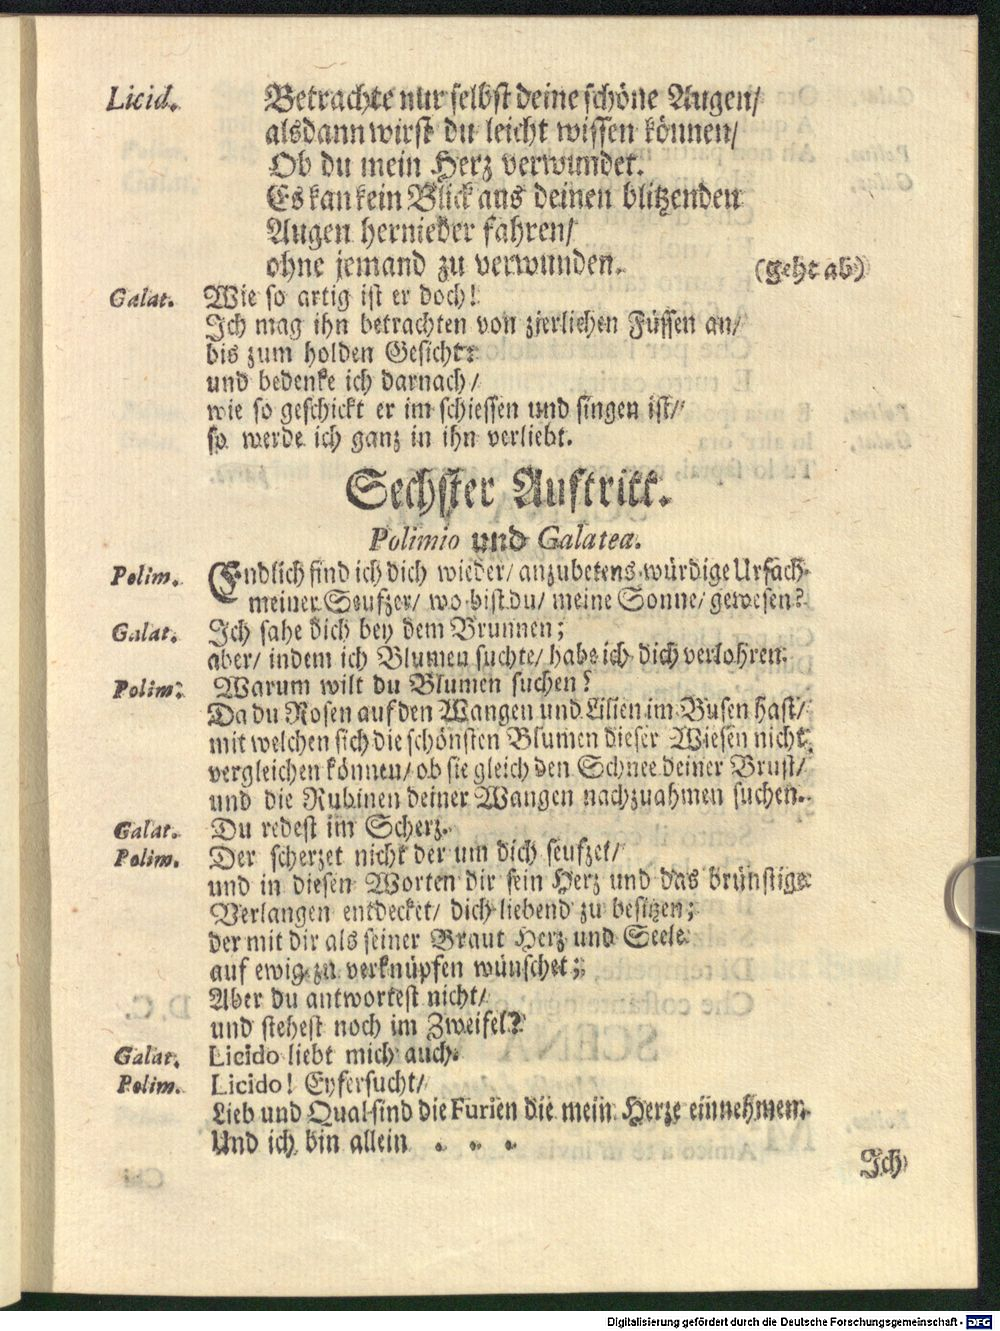 Licid. Betrachte nur selbst deine schöne Augen/
alsdann wirst du leicht wissen können/
Ob du mein Herz verwundet.
Es kan kein Blick aus deinen blitzenden
Augen hernieder fahren/
ohne jemand zu verwunden. (geht ab)
Galat. Wie so artig ist er doch!
Ich mag ihn betrachten von zierlichen Füssen an/
bis zum holden Gesicht:
und bedenke ich darnach/
wie so geschickt er im schiessen und singen ist/
so werde ich ganz in ihn verliebt.
Sechster Auftritt.
Polimio und Galatea.
Polim. Endlich find ich dich wieder/ anzubetens-würdige Ursach
meiner Seufzer/ wo bist du/ meine Sonne/ gewesen?
Galat. Ich sahe dich bey dem Brunnen;
aber/ indem ich Blumen suchte/ habe ich dich verlohren.
Polim. Warum wilt du Blumen suchen?
Da du Rosen auf den Wangen und Lilien im Busen hast/
mit welchen sich die schönsten Blumen dieser Wiesen nicht
vergleichen können/ ob sie gleich den Schnee deiner Brust/
und die Rubinen deiner Wangen nachzuahmen suchen.
Galat. Du redest im Scherz.
Polim. Der scherzet nicht der um dich seufzet/
und in diesen Worten dir sein Herz und das brünstige
Verlangen entdecket/ dich liebend zu besitzen;
der mit dir als seiner Braut Herz und Seele
auf ewig zu verknüpfen wünschet;
Aber du antwortest nicht/
und stehest noch im Zweifel?
Galat. Licido liebt mich auch.
Polim. Licido! Eyfersucht/
Lieb und Qual sind die Furien die mein Herze einnehmen.
Und ich bin allein . . .
Ich
Digitalisierung gefördert durch die Deutsche Forschungsgemeinschaft - DFG